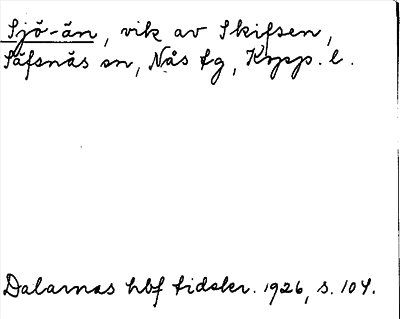 Sjö-än, vik av Skifsen,
Säfsnäs sn, Nås tg, Kopp. l.
Dalarnas hbf tidskr. 1926, s. 104.